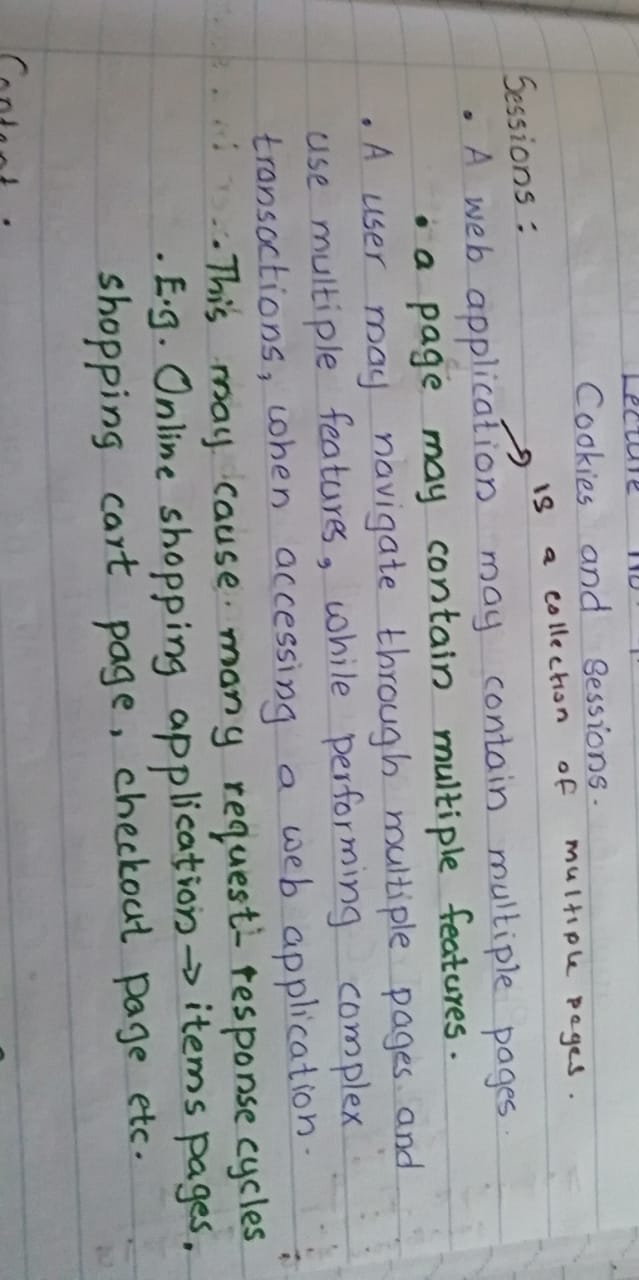 Lecture No.
Cookies and sessions.
is a collection of multiple pages.
Sessions:
• A web application may contain multiple pages.
• a page may contain multiple features.
• A user may navigate through multiple pages and
use multiple features, while performing complex
transactions, when accessing a web application.
• This may cause many request-response cycles
• E.g. Online shopping application → items pages,
shopping cart page, checkout page etc.